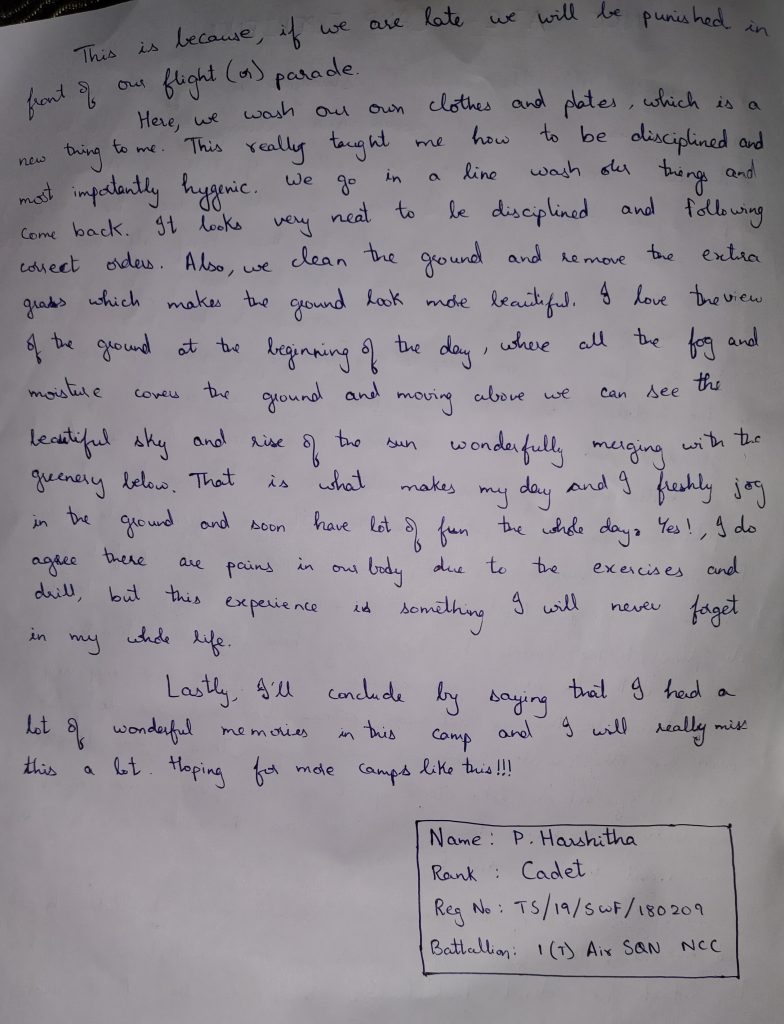 This is because, if we are late we will be punished in
front of our flight (or) parade.
Here, we wash our own clothes and plates, which is a
new thing to me. This really taught me how to be disciplined and
most importantly hygenic. We go in a line wash our things and
come back. It looks very neat to be disciplined and following
correct orders. Also, we clean the ground and remove the extra
grass which makes the ground look more beautiful. I love the view
of the ground at the beginning of the day, where all the fog and
moisture covers the ground and moving above we can see the
beautiful sky and rise of the sun wonderfully merging with the
greenery below. That is what makes my day and I freshly jog
in the ground and soon have lot of fun the whole day. Yes!, I do
agree there are pains in our body due to the exercises and
drill, but this experience is something I will never forget
in my whole life.
Lastly, I'll conclude by saying that I had a
lot of wonderful memories in this camp and I will really miss
this a lot. Hoping for more camps like this!!!
Name : P. Harshitha
Rank : Cadet
Reg No : TS/19/SWF/180209
Battallion : 1 (T) Air SQN NCC